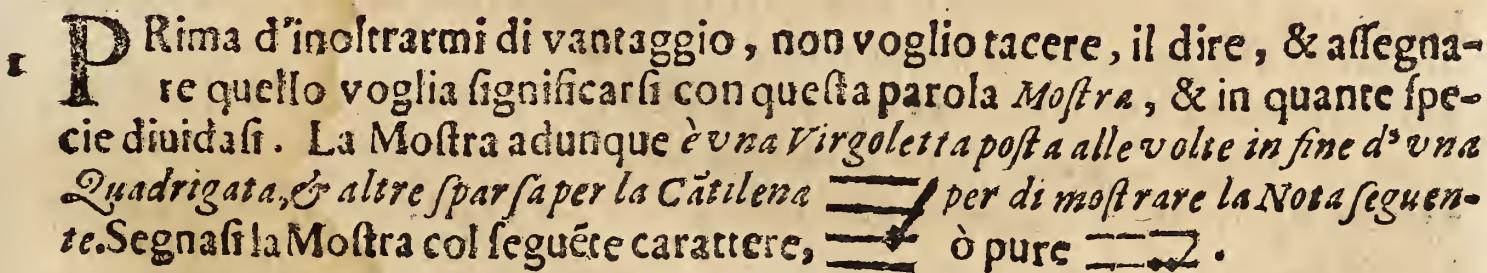 1 PRima d'inoltrarmi di vantaggio, non voglio tacere, il dire, & assegna-
re quello voglia significarsi con questa parola Mostra, & in quante spe-
cie diuidasi. La Mostra adunque è vna Virgoletta posta alle volte in fine d'vna
Quadrigata, & altre sparsa per la Cãtilena per di mostrare la Nota seguen-
te. Segnasi la Mostra col seguẽte carattere, ò pure .